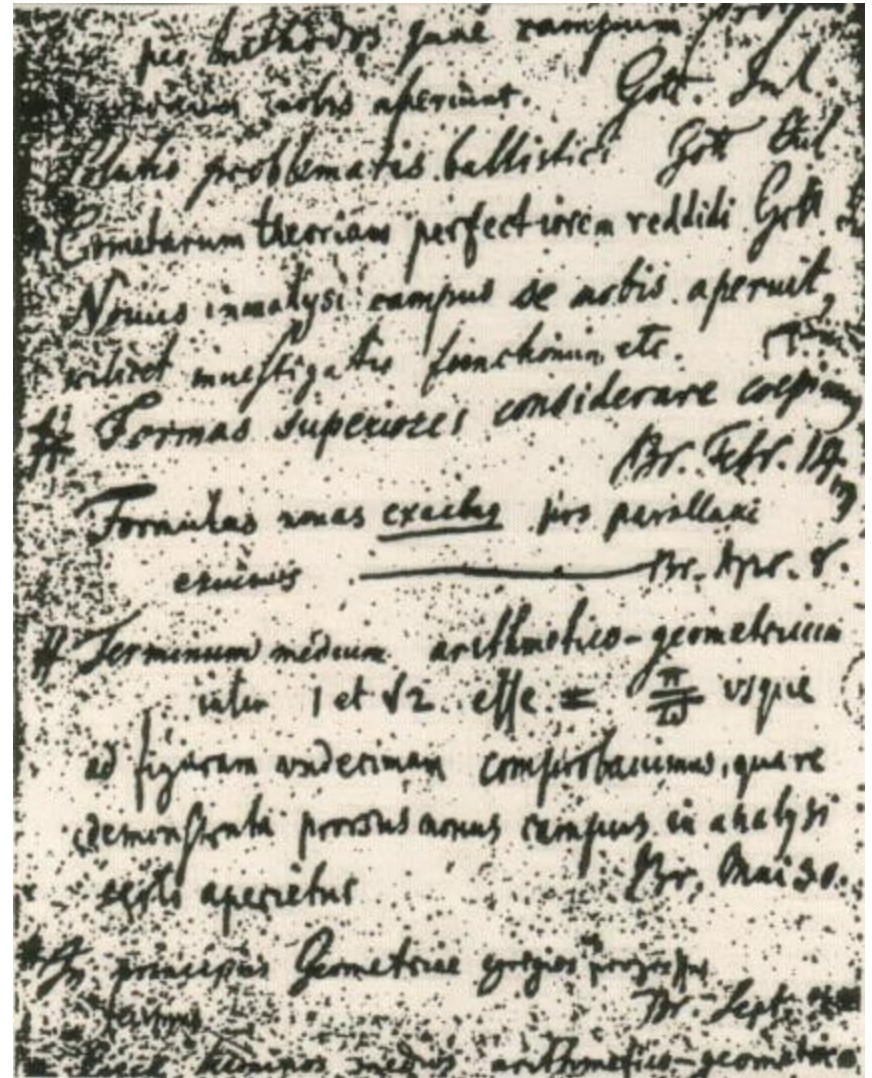 per methodos quae campum
nobis aperiunt. Gott. Jul.
Solutio problematis ballistici Gott Jul.
Cometarum theoriam perfectiorem reddidi Gott
Novus in analysi campus se nobis aperuit,
scilicet investigatio functionum etc.
Formas superiores considerare coepimus
Br. Febr. 14
Formulas novas exactas pro parallaxi
eruimus Br. Apr. 8.
Terminum medium arithmetico-geometricum
inter 1 et √2 esse = π/ϖ usque
ad figuram undecimam comprobavimus, quare
demonstrata prorsus novus campus in analysi
certo aperietur Br. Mai 30.
In principiis Geometriae egregios progressus
fecimus Br. Sept.
Circa terminos medios arithmetico-geometricos